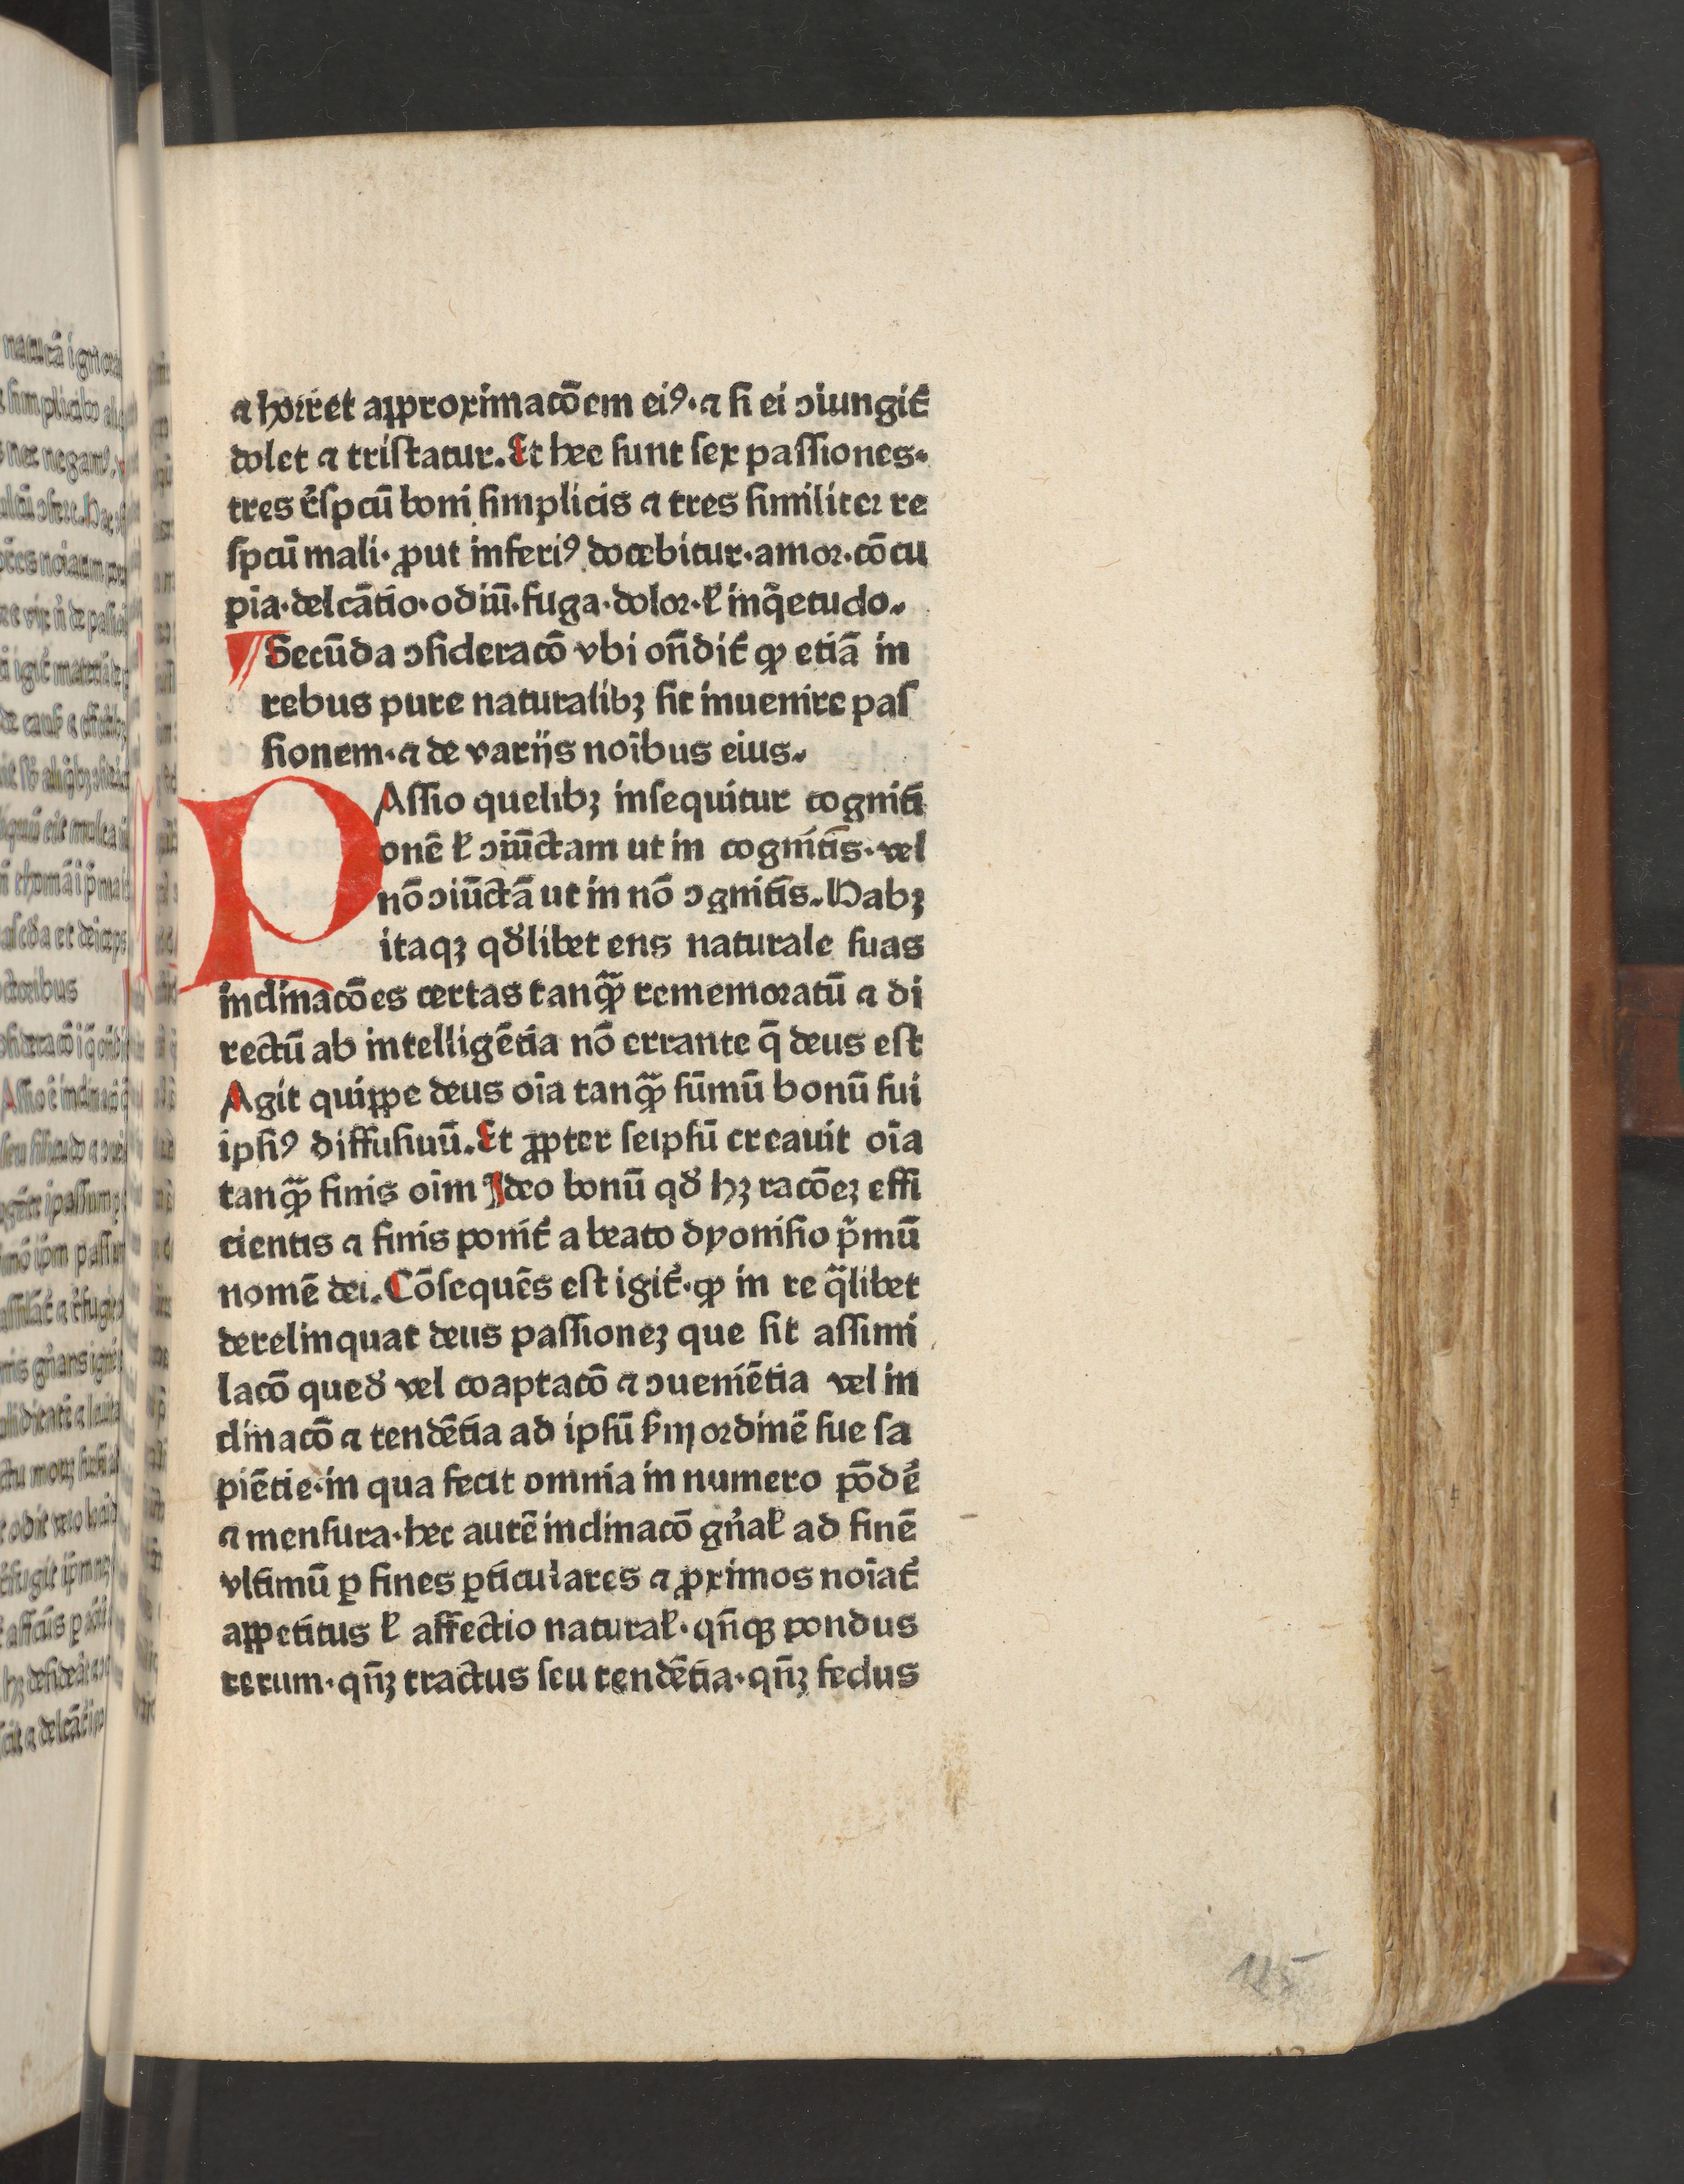 ⁊ horret approximacōem eiꝰ·⁊ ſi ei ↄiungit᷑
dolet ⁊ triſtatur. Et hee ſunt ſex paſſiones·
tres r̄ſpcū boni ſimplicis ⁊ tres ſimiliter re
ſpcū mali· ꝓut inferiꝰ docebitur·amor·cōcu
pīa·delcātio·odiū·fuga·dolor·ł inq̄etudo.
Secūda ↄſideracō vbi oñdit᷑ ꝙ etiā in
rebus pure naturalibꝫ ſit inuenire paſ
ſionem·⁊ de varijs noībus eius.
PAſſio quelibꝫ inſequitur cogniti
onē ł ↄiūctam ut in cognitīs·vel
nō ↄiūctā ut in nō ↄgnitīs. Habꝫ
itaqꝫ qd̛libet ens naturale ſuas
inclinacōes certas tanqᷓꝫ rememoratū ⁊ di
rectū ab intelligētia nō errante q̄ deus eſt
Agit quippe deus oīa tanqᷓꝫ ſūmū bonū ſui
ipſiꝰ diffuſiuū. Et ꝓpter ſeipſū creauit oīa
tanqᷓꝫ finis oīm Ideo bonū qd̛ hꝫ racōeꝫ effi
cientis ⁊ finis ponit᷑ a beato dyoniſio p̄mū
nomē dei. Cōſequēs eſt igit᷑·ꝙ in re qᷓlibet
derelinquat deus paſſioneꝫ que ſit aſſimi
lacō qued̛ vel coaptacō ⁊ ↄueniētia vel in
clinacō ⁊ tendētia ad ipſū ẜm ordinē ſue ſa
piētie·in qua fecit omnia in numero pōdē
⁊ menſura·hec autē inclinacō gn̄ał ad finē
vltimū ꝑ fines ꝑticulares ⁊ ꝓximos noīat᷑
appetitus ł affectio natural̵·qn̄qꝫ pondus
rerum·qn̄ꝫ tractus ſeu tendētia·qn̄ꝫ fedus
125